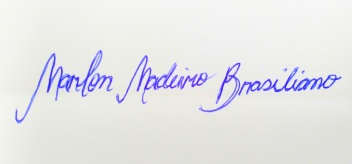 Marlon Madeiro Brasiliano